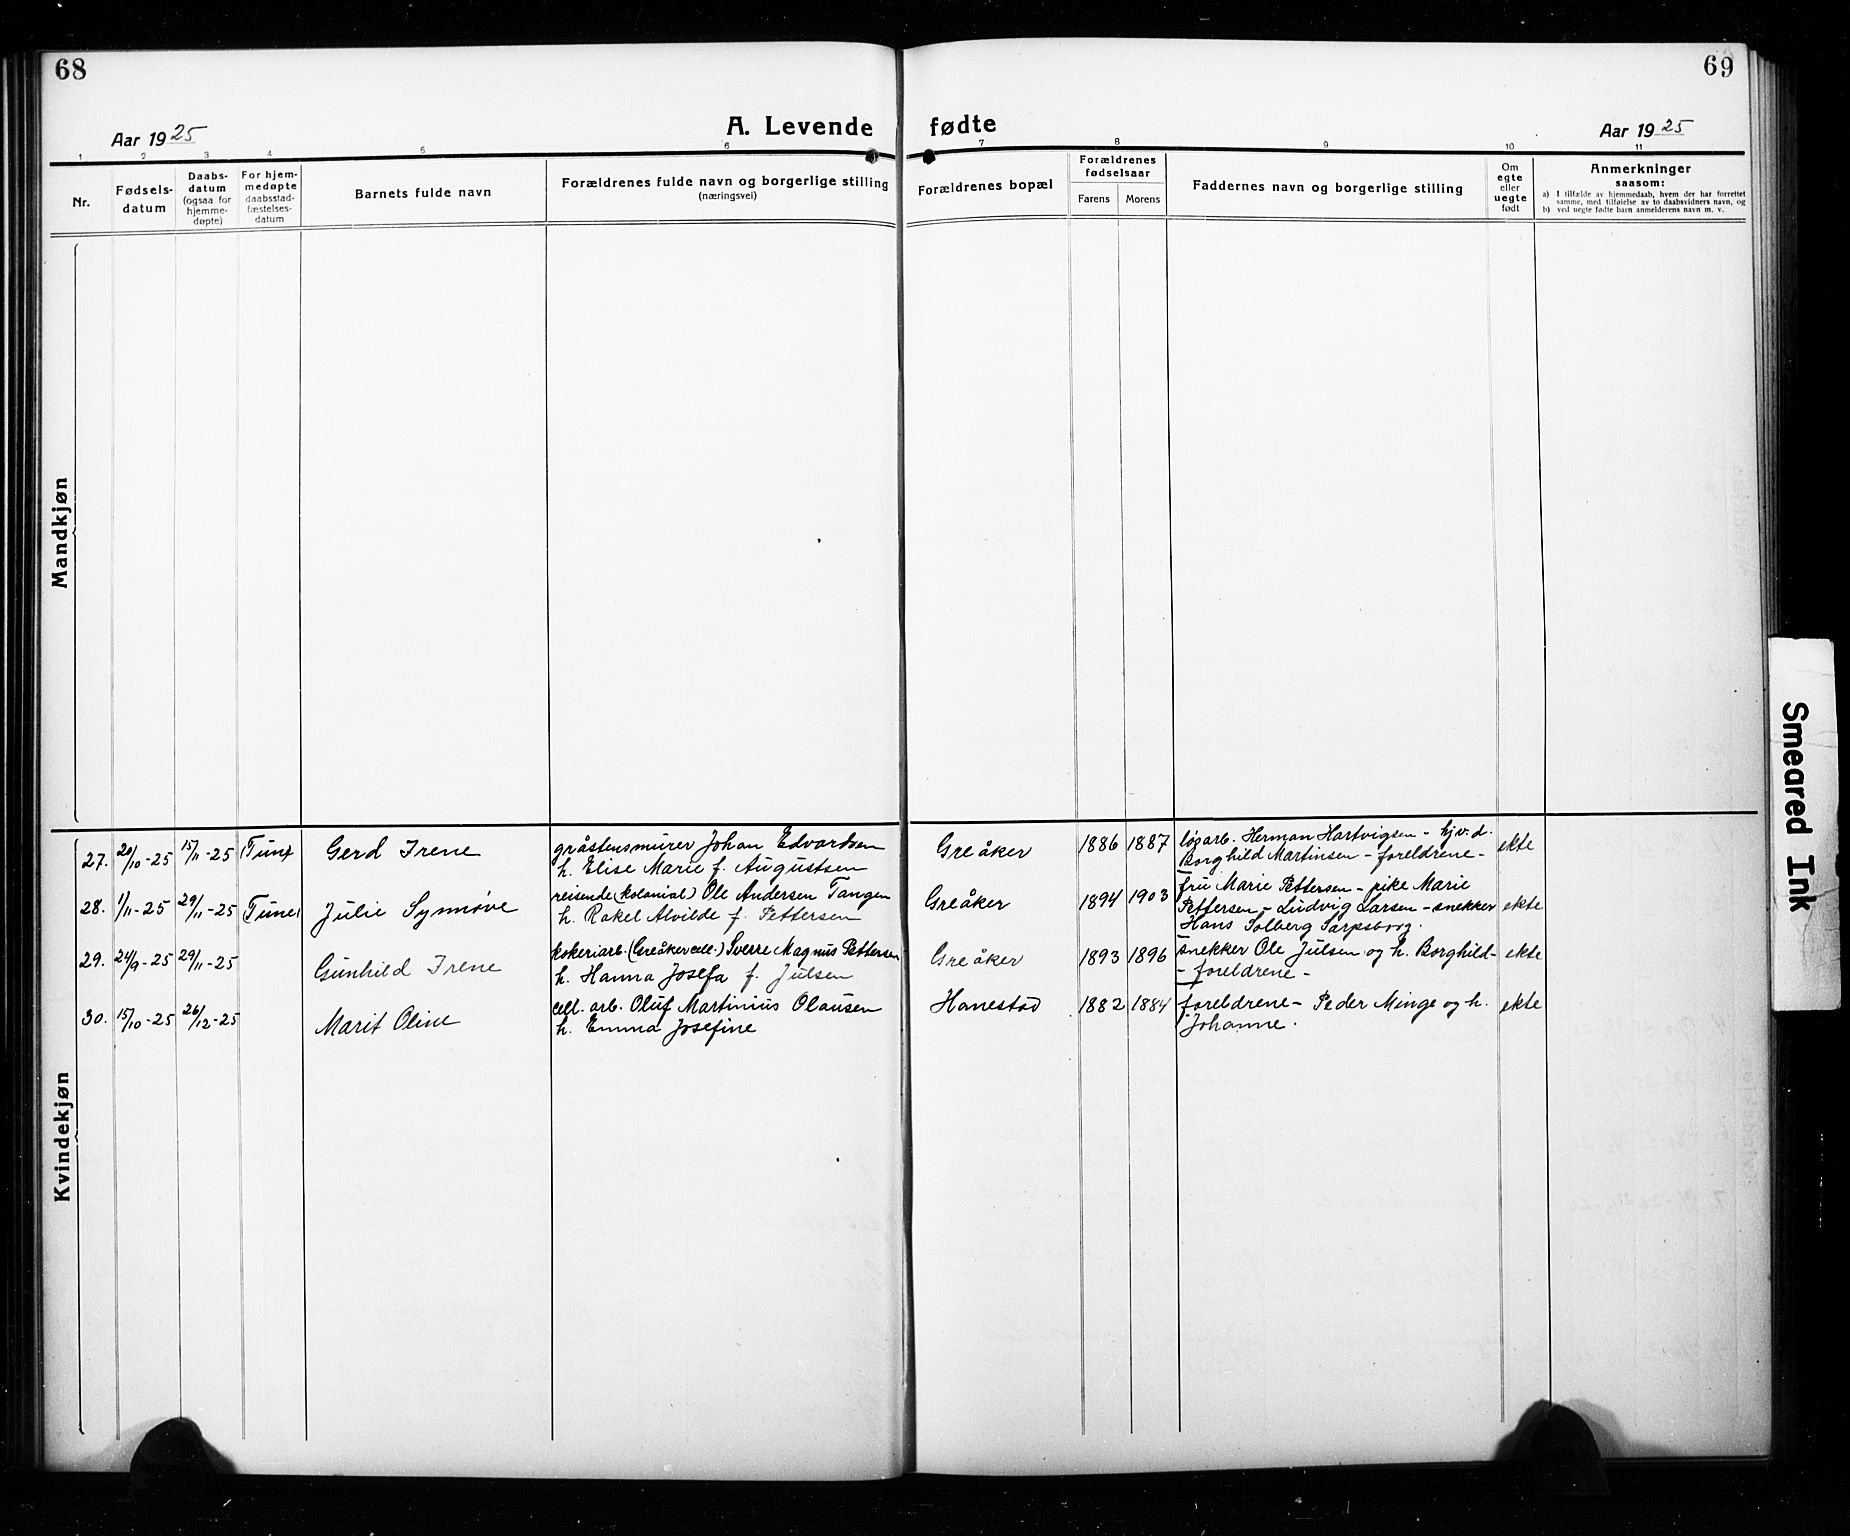 68
69
Aar 1925
A. Levende fødte
Aar 1925
1 2 3 4 5 6 7 8 9 10 11
Nr.
Fødsels-
datum
Daabs-
datum
(ogsaa for
hjemme-
døpte)
For hjem-
medøpte
daabsstad-
fæstelses-
datum
Barnets fulde navn
Forældrenes fulde navn og borgerlige stilling
(næringsvei)
Forældrenes bopæl
Forældrenes
fødselsaar
Farens
Morens
Faddernes navn og borgerlige stilling
Om
egte
eller
uegte
født
Anmerkninger
saasom:
a) I tilfælde av hjemmedaab, hvem der har forrettet
samme, med tilføielse av to daabsvidners navn, og
b) ved uegte fødte barn anmelderens navn m. v.
Mandkjøn
Kvindekjøn
27. 20/10-25 15/11-25 Tune Gerd Irene
gråstensmurer Johan Edvardsen
h. Elise Marie f. Augustsen
Greåker 1886 1887
løsarb. Herman Hartvigsen - hj.v.d.
Borghild Martinsen - foreldrene -
ekte
28. 1/11-25 29/11-25 Tune Julie Synnøve
reisende (kolonial) Ole Andersen Tangen
h. Rakel Alvilde f. Pettersen
Greåker 1894 1903
fru Marie Pettersen - pike Marie
Pettersen - Ludvig Larsen - snekker
Hans Solberg Sarpsborg.
ekte
29. 24/9-25 29/11-25 Gunhild Irene
kokeriarb. (Greåker cell.) Sverre Magnus Pettersen
h. Hanna Josefa f. Julsen
Greåker 1893 1896
snekker Ole Julsen og h. Borghild-
- foreldrene -
ekte
30. 15/10-25 26/12-25 Marit Oline
cell. arb. Oluf Martinius Olausen
h. Emma Josefine
Hanestad 1882 1884
foreldrene - Peder Minge og h.
Johanne.
ekte
Smeared Ink